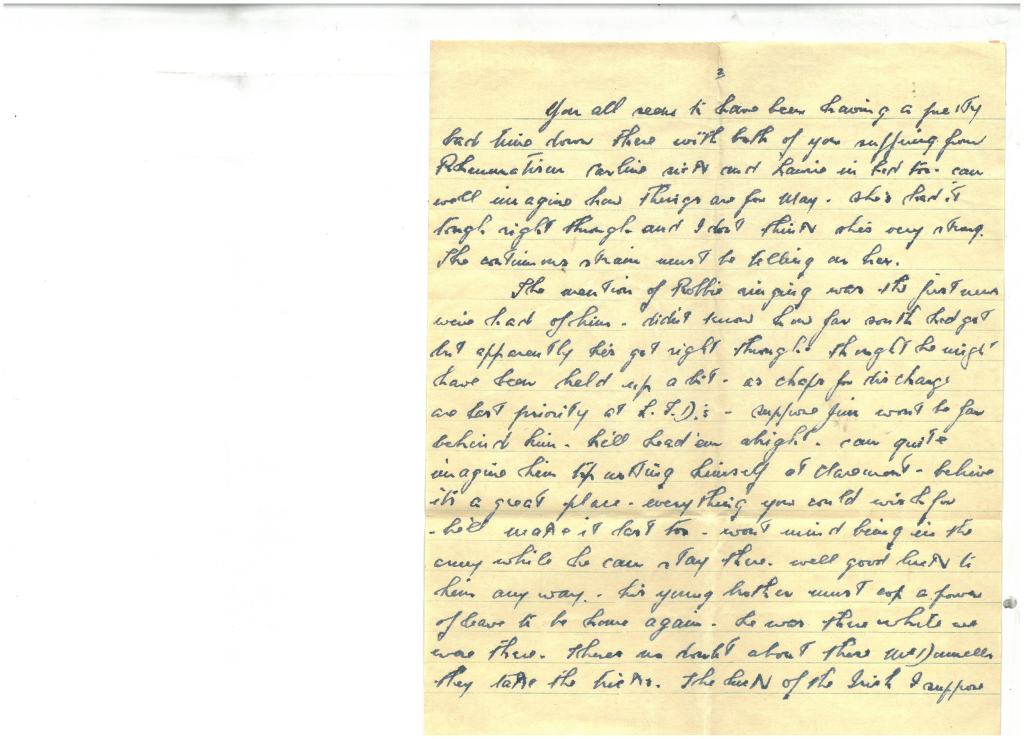 2
You all seem to have been having a pretty
bad time down there with both of you suffring from
Rheumatism Carline sick and Laurie in bed too. can
well imagine how things are for May. she's had it
tough right through and I don't think she's very strong.
The continuous strain must be telling on her.
The mention of Robbie ringing was the first news
we've had of him. didn't know how far south hed got
but apparently he's got right through. thought he might
have been held up a bit - as chaps for discharge
are last priority at L.T.D.s - suppose Jim wont be far
behind him. he'll head em alright. can quite
imagine him himself at Claremont - believe
it's a great place. everything you could wish for
- he'll make it last too - wont mind being in the
army while he can stay there. well good luck to
him any way. his young brother must cop a power
of leave to be home again. he was there while we
were there. theres no doubt about these McDonnells
they take the tricks. The luck of the Irish I suppose